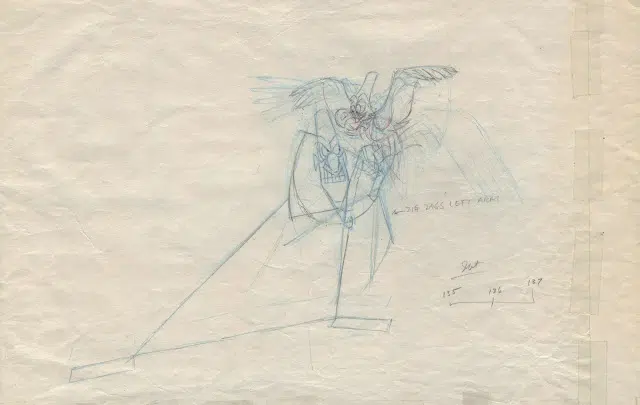 ZIG ZAGS LEFT ARM
125 126 127